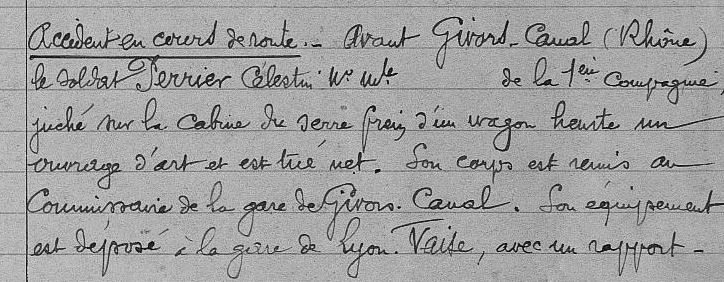 Accident en cours de route. - Avant Givors-Canal (Rhône)
le soldat Perrier Célestin. N° Mle de la 1ère Compagnie,
juché sur la cabine du serre frein d'un wagon heurte un
ouvrage d'art et est tué net. Son corps est remis au
Commissaire de la gare de Givors-Canal. Son équipement
est déposé à la gare de Lyon-Vaise, avec un rapport -